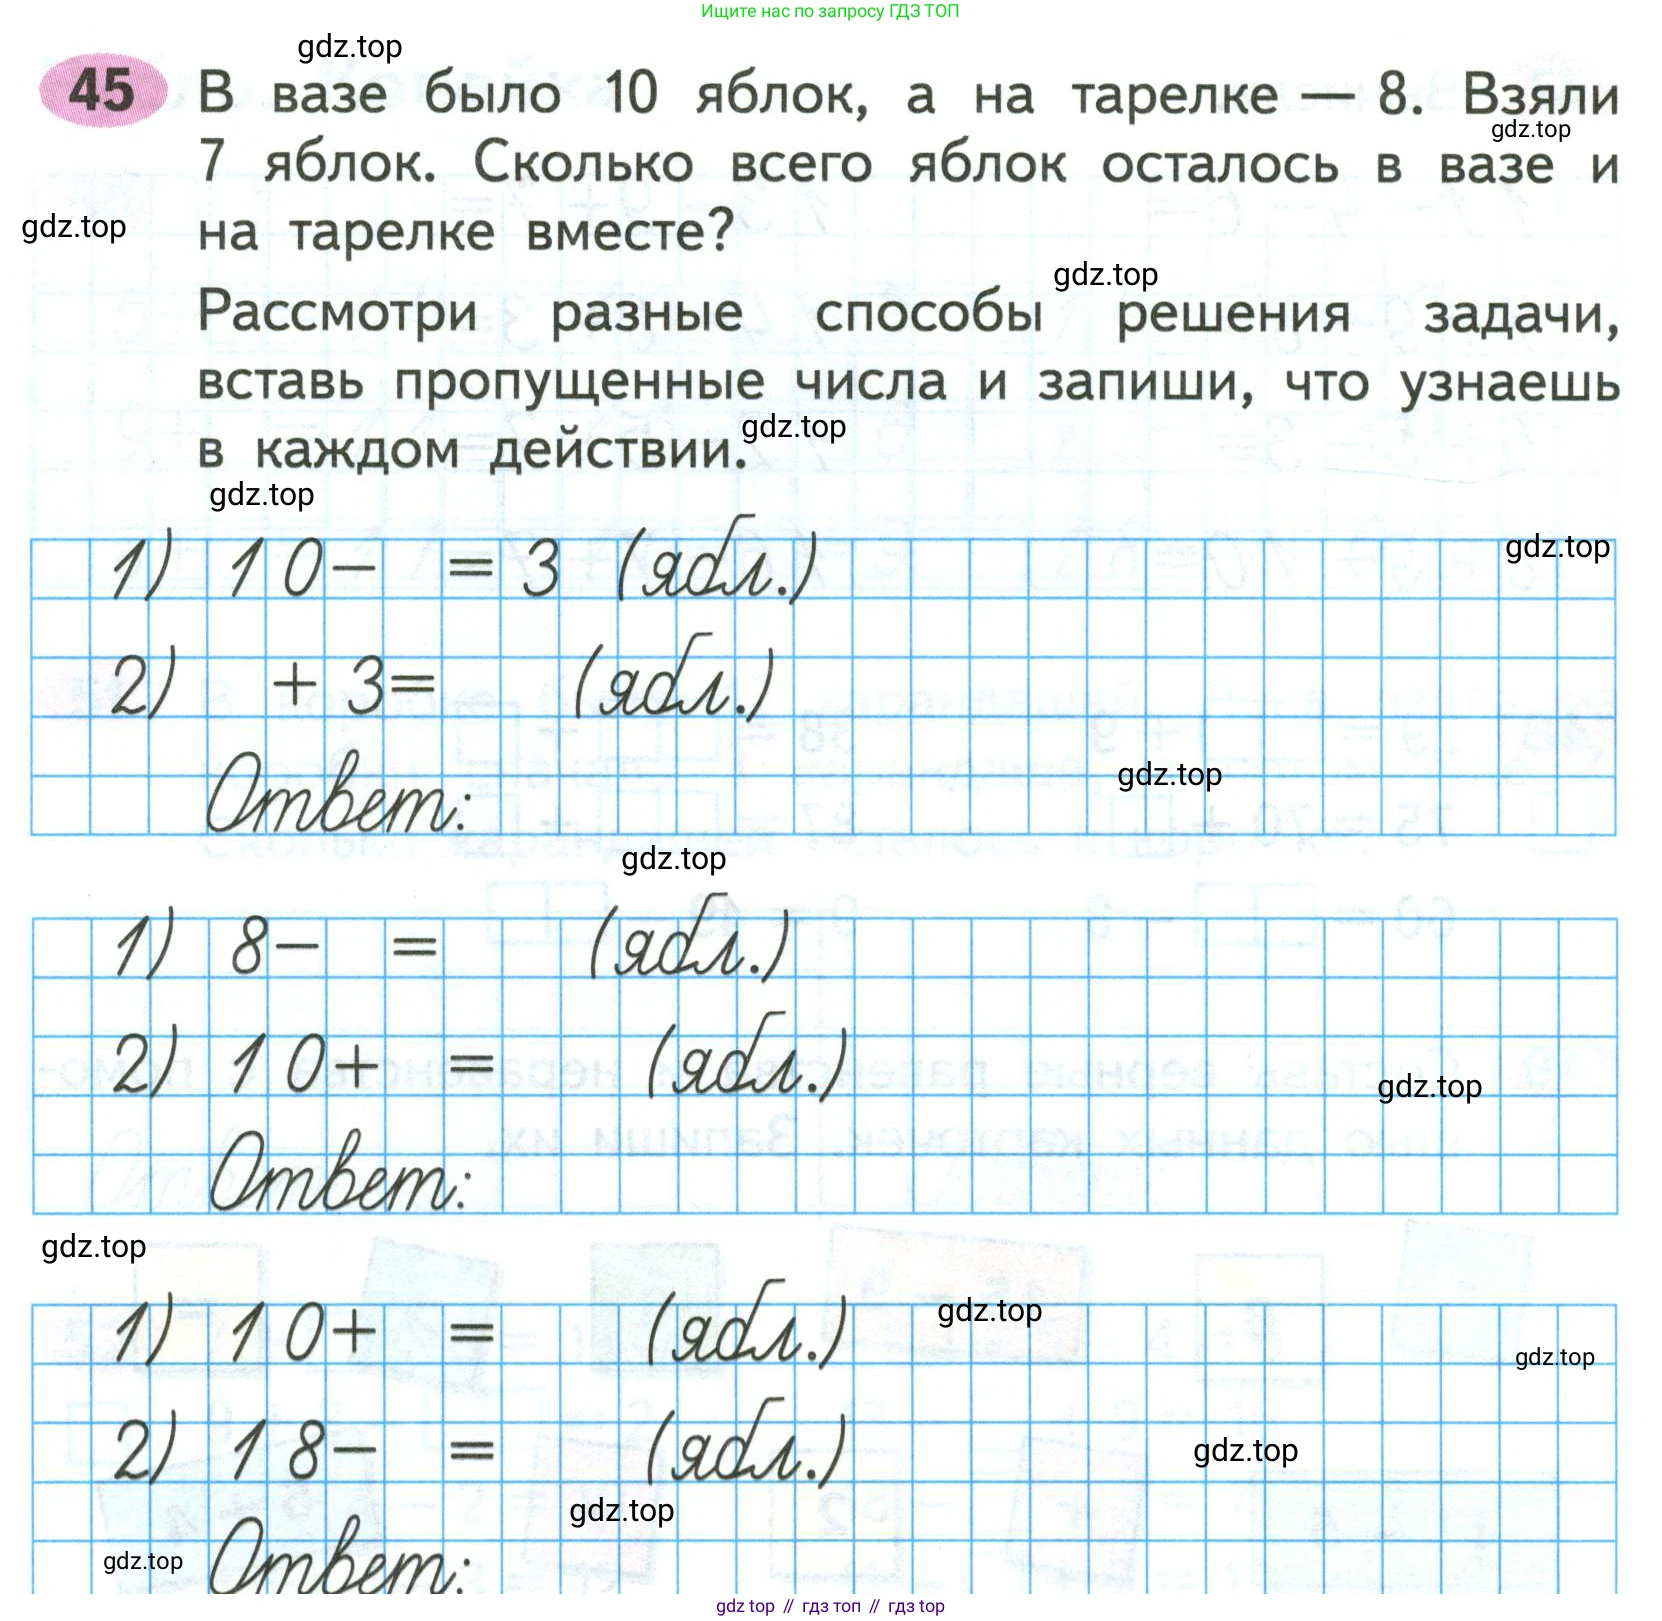 Ищите нас по запросу ГДЗ ТОП
gdz.top
45 В вазе было 10 яблок, а на тарелке — 8. Взяли
gdz.top
7 яблок. Сколько всего яблок осталось в вазе и
gdz.top
на тарелке вместе?
gdz.top
Рассмотри разные способы решения задачи,
вставь пропущенные числа и запиши, что узнаешь
gdz.top
в каждом действии.
gdz.top
1) 10− = 3 (ябл.)
gdz.top
2) + 3= (ябл.)
gdz.top
Ответ:
gdz.top
1) 8− = (ябл.)
2) 10+ = (ябл.)
gdz.top
Ответ:
gdz.top
1) 10+ = (ябл.)
gdz.top
gdz.top
2) 18− = (ябл.)
gdz.top
gdz.top
gdz.top
Ответ:
gdz top // гдз топ // гдз top